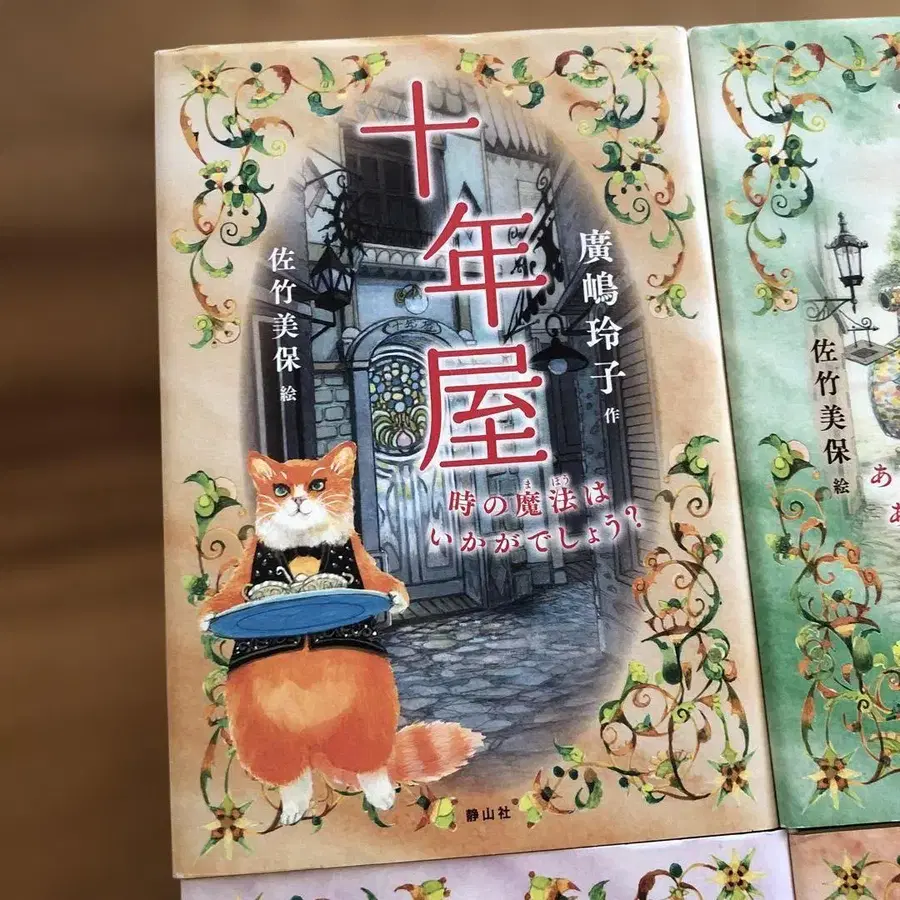 十年屋
廣嶋玲子 作
佐竹美保 絵
時の魔法は
まほう
いかがでしょう?
静山社
佐竹美保 絵
あ
あ